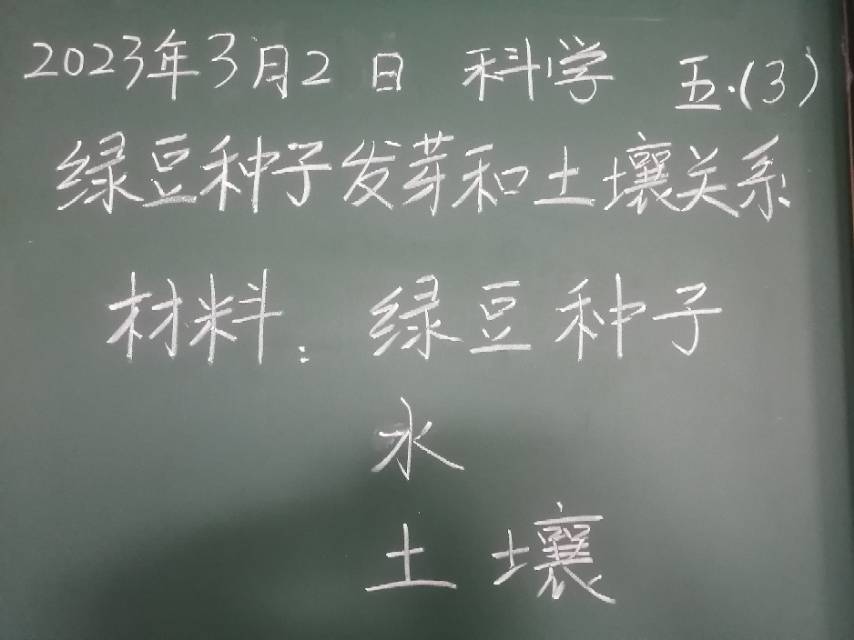 2023年3月2日 科学 五.(3)
绿豆种子发芽和土壤关系
材料：绿豆种子
水
土壤